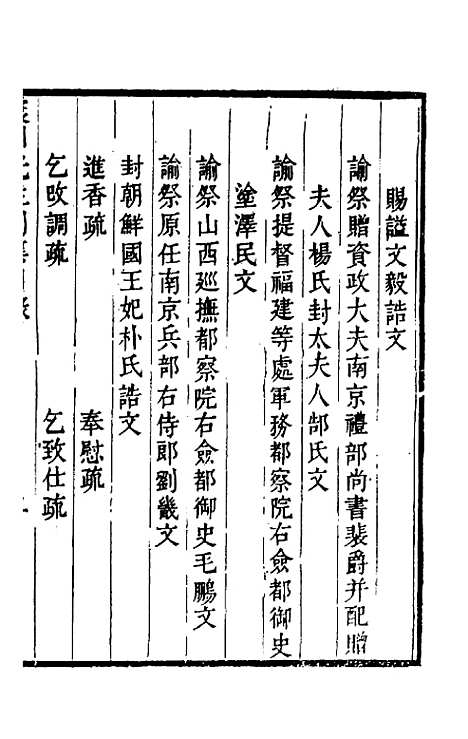 賜謚文毅誥文
諭祭贈資政大夫南京禮部尚書裴爵并配贈
夫人楊氏封太夫人郜氏文
諭祭提督福建等處軍務都察院右僉都御史
塗澤民文
諭祭山西廵撫都察院右僉都御史毛鵬文
諭祭原任南京兵部右侍郎劉畿文
封朝鮮國王妃朴氏誥文
進香疏 奉慰疏
乞改調疏 乞致仕疏